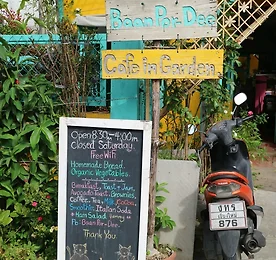 Baan Por Dee
Cafe in Garden
Open 8.30 - 4.00 p.m
Closed Saturday
Free Wifi
Homemade Bread
Organic Vegetables
Breakfast, Toast + Jam,
Avocado Toast, Brownies,
Coffee, Tea, Milk, Cocoa,
Smoothie, Italian Soda
Ham Salad
Baan Por Dee
Thank You
เชียงใหม่
876